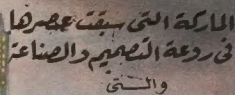 الماركة التى سبقت عصرها
فى روعة التصميم والصناعة
والستى